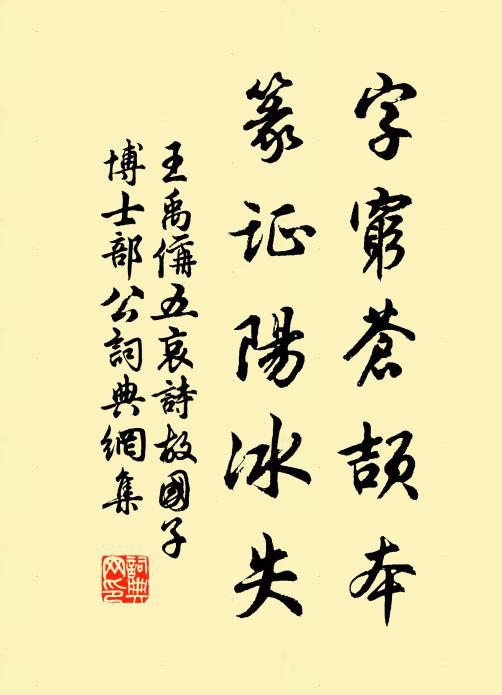 字窮蒼頡本
篆证陽冰失
王禹偁五哀詩故國子
博士部公詞典網集
詞典网印